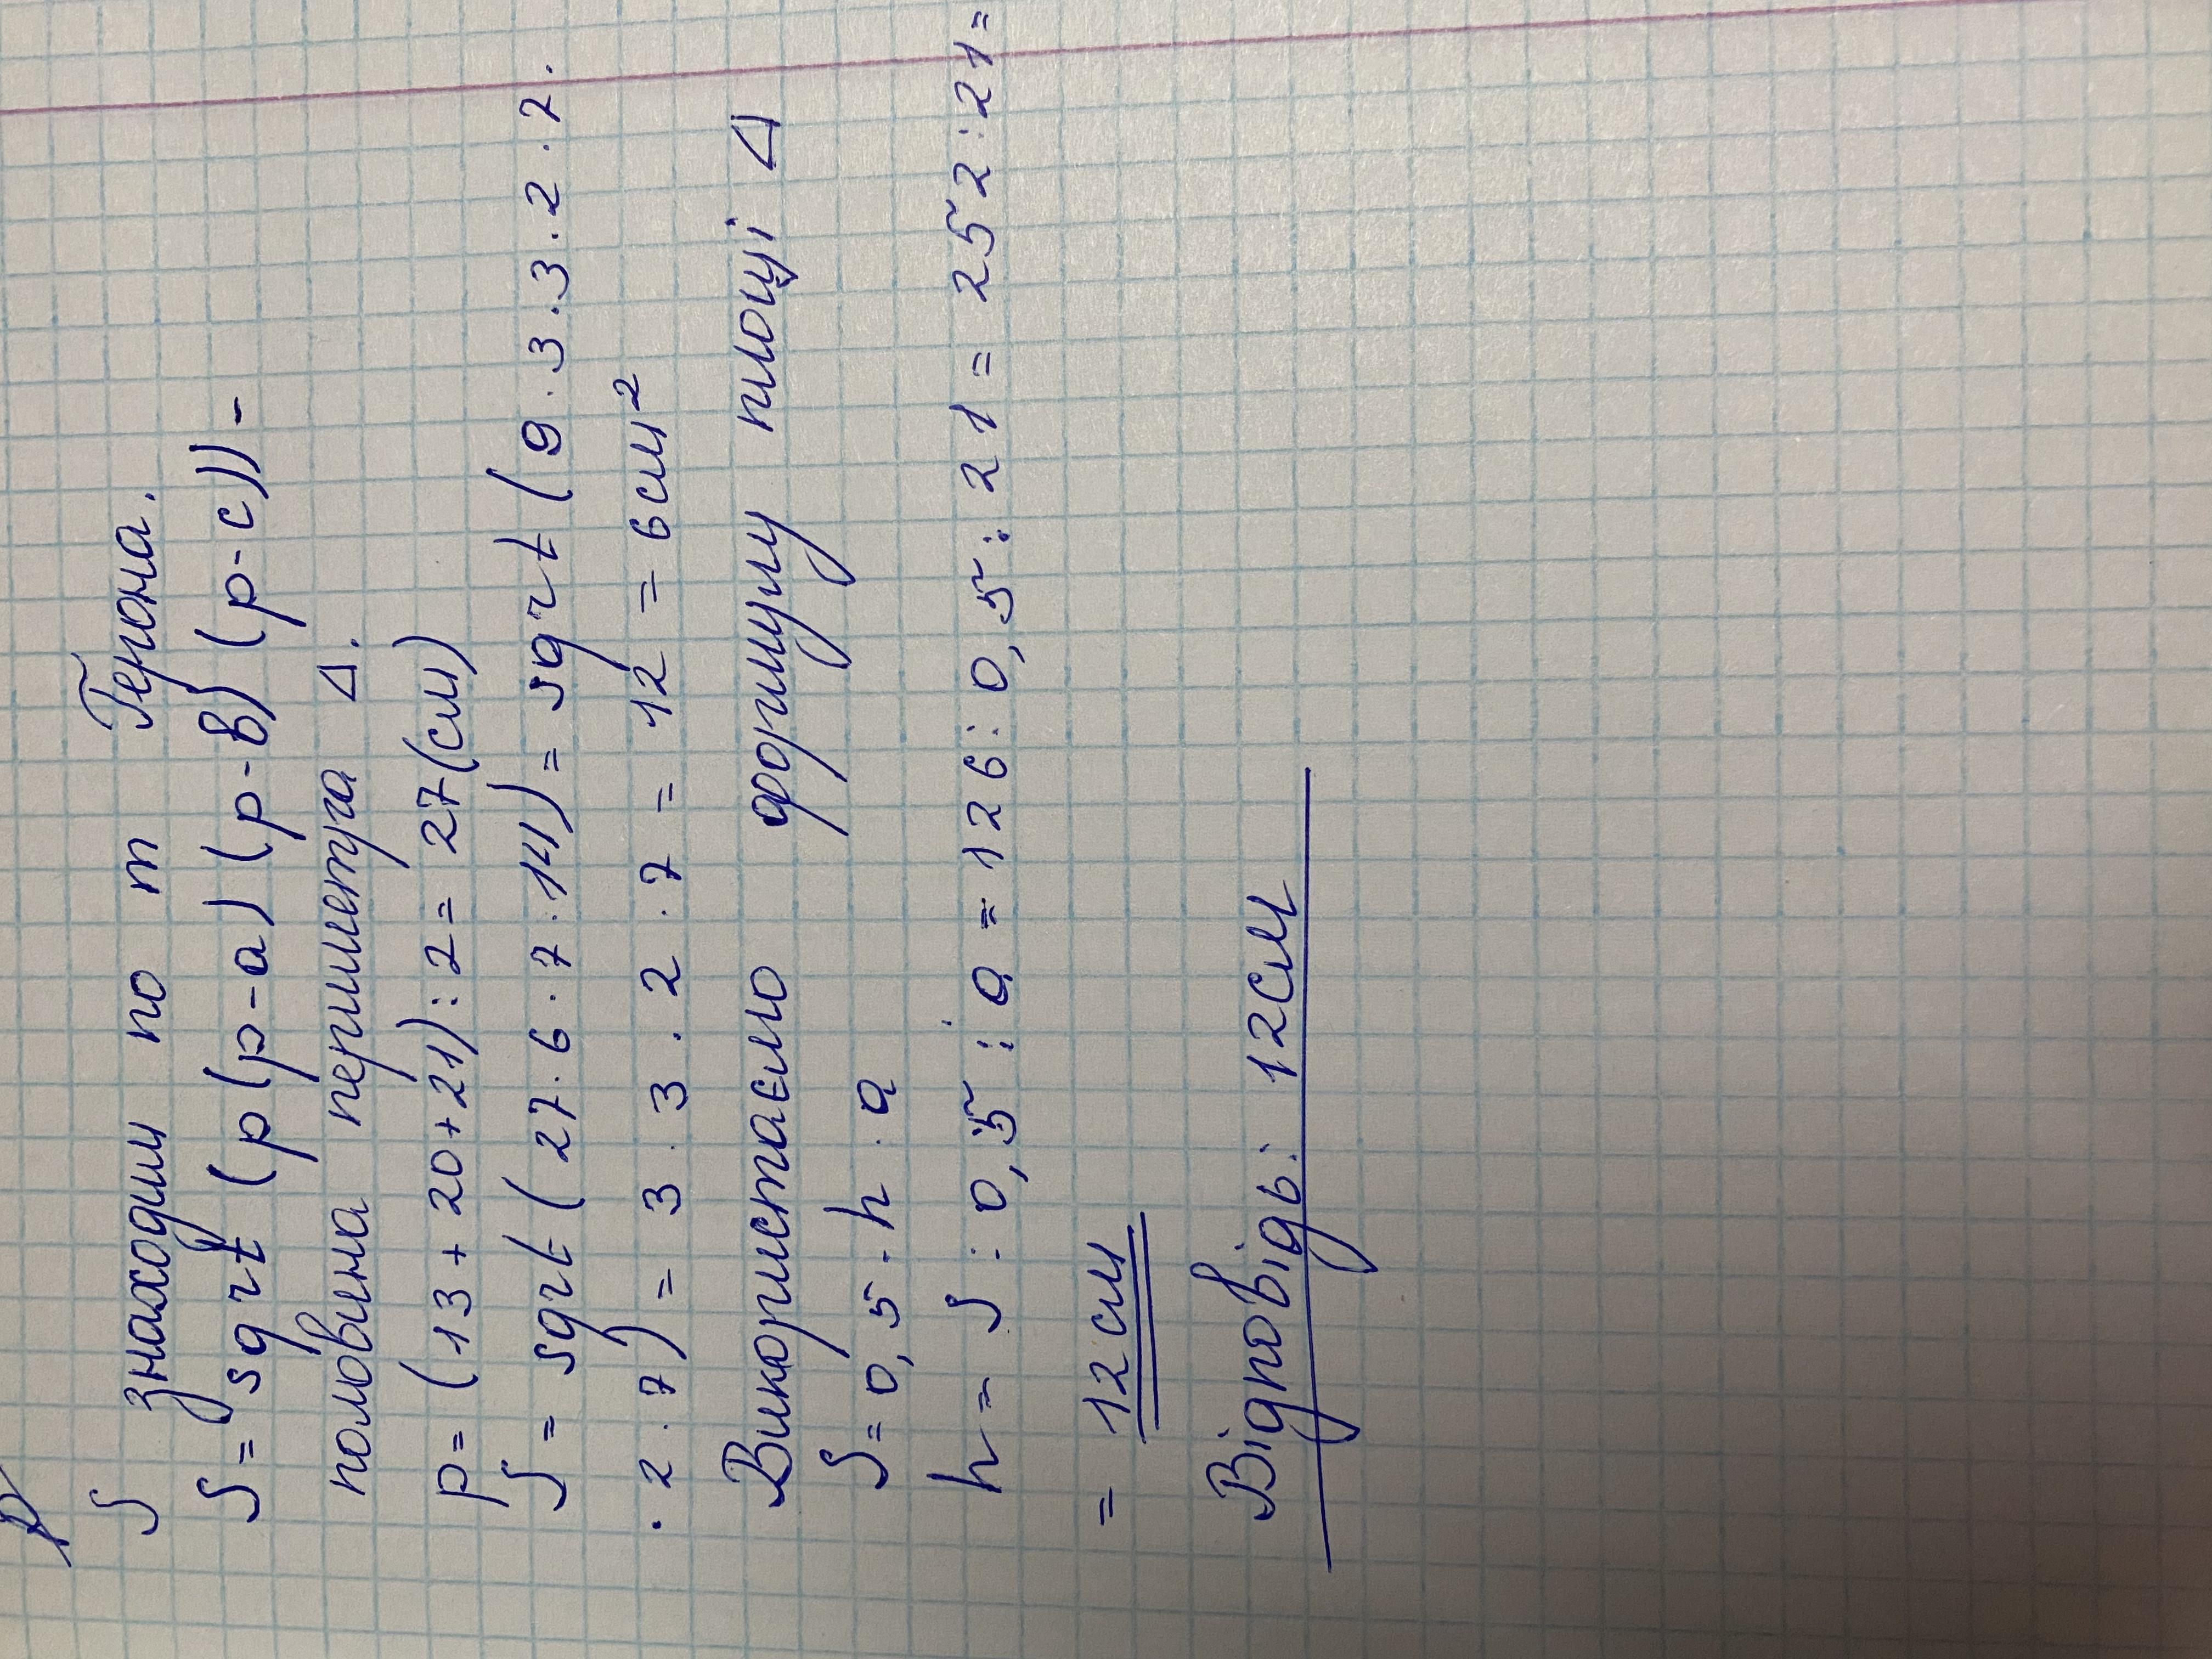 S знаходим по т Герона.
S = sqrt (p (p-a) (p-в) (p-c)) -
половина периметра △.
p= (13 + 20+21) : 2 = 27(см)
S = sqrt (27 · 6 · 7 · 14) = sqrt (9 · 3 · 3 · 2 · 7 ·
· 2 · 7) = 3 · 3 · 2 · 7 = 12 = 6см²
Використаємо формулу площі △
S = 0,5 · h · a
h = S : 0,5 : a = 126 : 0,5 : 21 = 252 : 21 =
= 12 см
Відповідь: 12см